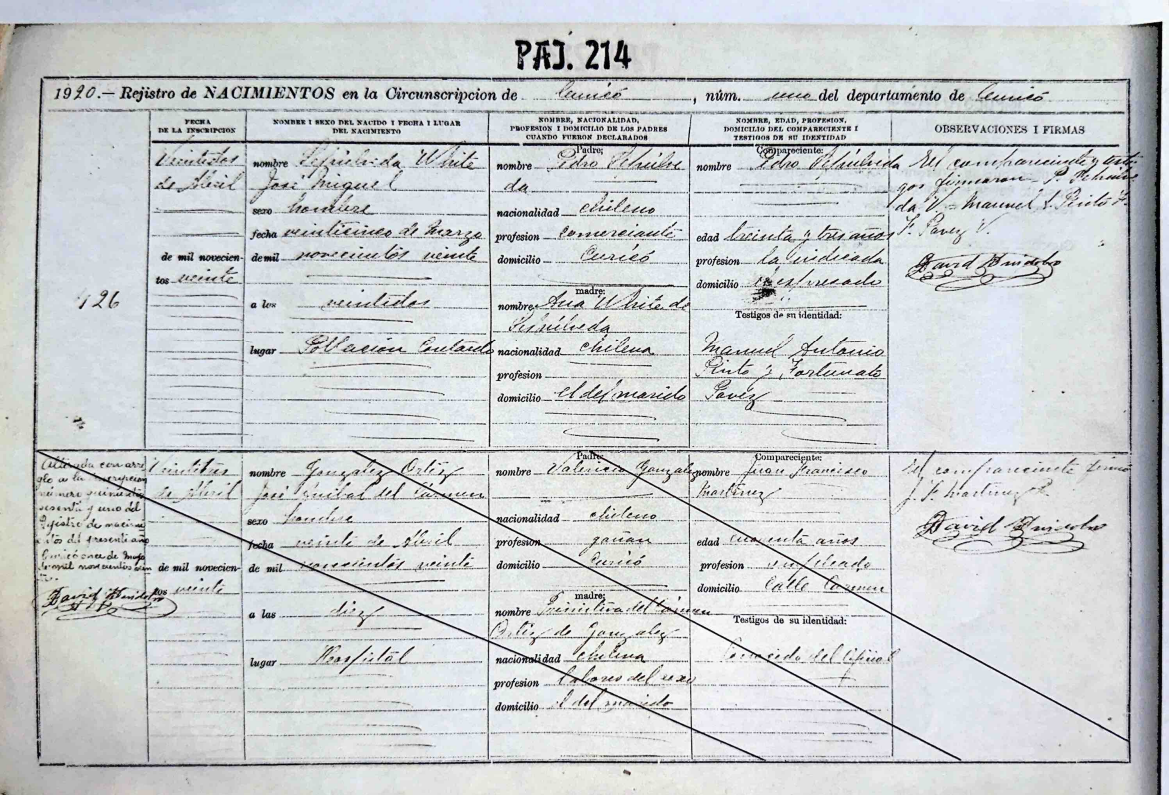 PAJ. 214
1920.— Rejistro de NACIMIENTOS en la Circunscripcion de Curicó, núm. uno del departamento de Curicó
FECHA
DE LA INSCRIPCION
NOMBRE I SEXO DEL NACIDO I FECHA I LUGAR
DEL NACIMIENTO
NOMBRE, NACIONALIDAD,
PROFESION I DOMICILIO DE LOS PADRES
CUANDO FUERON DECLARADOS
NOMBRE, EDAD, PROFESION,
DOMICILIO DEL COMPARECIENTE I
TESTIGOS DE SU IDENTIDAD
OBSERVACIONES I FIRMAS
126
Veintidos
de Abril
de mil novecien-
tos veinte
nombre Sepúlveda White
José Miguel
sexo hombre
fecha veinticinco de Marzo
de mil novecientos veinte
a las veintidos
lugar Poblacion
Padre:
nombre Pedro Sepúlve
da
nacionalidad chileno
profesion comerciante
domicilio Curicó
madre:
nombre Ana White de
Sepúlveda
nacionalidad chilena
profesion
domicilio el del marido
Compareciente:
Pedro Sepúlveda
edad treinta y tres años
profesion la indicada
domicilio
Testigos de su identidad:
Manuel Antonio
Pinto y Fortunato
Pavez
El compareciente y testi
gos firmaron P. Sepúlve
da V. Manuel A. Pinto F.
F. Pavez V.
David
de Abril
de mil novecien-
tos veinte
nombre Gonzalez Ortiz
José Anibal del Cármen
sexo hombre
fecha veinte de Abril
de mil novecientos veinte
a las diez
lugar Hospital
Padre:
nombre Valencio Gonzalez
nacionalidad chileno
profesion gañan
domicilio Curicó
madre:
nombre del Cármen
Ortiz de Gonzalez
nacionalidad chilena
profesion labores del sexo
domicilio el del marido
Compareciente:
Juan Francisco
Martinez
edad cuarenta años
profesion empleado
domicilio Calle Carmen
Testigos de su identidad:
Conocido del oficial
El compareciente firmó
J. F. Martinez
David
numero
Rejistro de nacimi
entos del presente año
Curicó once de Mayo
David